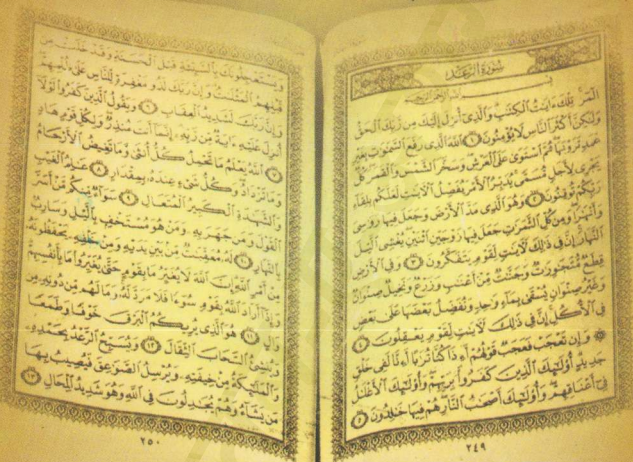 سُورَةُ الرَّعْدِ
بِسْمِ اللَّهِ الرَّحْمَٰنِ الرَّحِيمِ
الٓمٓر تِلْكَ ءَايَٰتُ الْكِتَٰبِ وَالَّذِي أُنزِلَ إِلَيْكَ مِن رَّبِّكَ الْحَقُّ
وَلَٰكِنَّ أَكْثَرَ النَّاسِ لَا يُؤْمِنُونَ ١ اللَّهُ الَّذِي رَفَعَ السَّمَٰوَٰتِ بِغَيْرِ
عَمَدٍ تَرَوْنَهَا ثُمَّ اسْتَوَىٰ عَلَى الْعَرْشِ وَسَخَّرَ الشَّمْسَ وَالْقَمَرَ كُلٌّ
يَجْرِي لِأَجَلٍ مُّسَمًّى يُدَبِّرُ الْأَمْرَ يُفَصِّلُ الْءَايَٰتِ لَعَلَّكُم بِلِقَاءِ
رَبِّكُمْ تُوقِنُونَ ٢ وَهُوَ الَّذِي مَدَّ الْأَرْضَ وَجَعَلَ فِيهَا رَوَٰسِيَ
وَأَنْهَٰرًا وَمِن كُلِّ الثَّمَرَٰتِ جَعَلَ فِيهَا زَوْجَيْنِ اثْنَيْنِ يُغْشِي الَّيْلَ
النَّهَارَ إِنَّ فِي ذَٰلِكَ لَءَايَٰتٍ لِّقَوْمٍ يَتَفَكَّرُونَ ٣ وَفِي الْأَرْضِ
قِطَعٌ مُّتَجَٰوِرَٰتٌ وَجَنَّٰتٌ مِّنْ أَعْنَٰبٍ وَزَرْعٌ وَنَخِيلٌ صِنْوَانٌ
وَغَيْرُ صِنْوَانٍ يُسْقَىٰ بِمَاءٍ وَٰحِدٍ وَنُفَضِّلُ بَعْضَهَا عَلَىٰ بَعْضٍ
فِي الْأُكُلِ إِنَّ فِي ذَٰلِكَ لَءَايَٰتٍ لِّقَوْمٍ يَعْقِلُونَ ٤
۞ وَإِن تَعْجَبْ فَعَجَبٌ قَوْلُهُمْ أَءِذَا كُنَّا تُرَٰبًا أَءِنَّا لَفِي خَلْقٍ
جَدِيدٍ أُولَٰئِكَ الَّذِينَ كَفَرُوا بِرَبِّهِمْ وَأُولَٰئِكَ الْأَغْلَٰلُ
فِي أَعْنَاقِهِمْ وَأُولَٰئِكَ أَصْحَٰبُ النَّارِ هُمْ فِيهَا خَٰلِدُونَ ٥
٢٤٩
وَيَسْتَعْجِلُونَكَ بِالسَّيِّئَةِ قَبْلَ الْحَسَنَةِ وَقَدْ خَلَتْ مِن
قَبْلِهِمُ الْمَثُلَٰتُ وَإِنَّ رَبَّكَ لَذُو مَغْفِرَةٍ لِّلنَّاسِ عَلَىٰ ظُلْمِهِمْ
وَإِنَّ رَبَّكَ لَشَدِيدُ الْعِقَابِ ٦ وَيَقُولُ الَّذِينَ كَفَرُوا لَوْلَا
أُنزِلَ عَلَيْهِ ءَايَةٌ مِّن رَّبِّهِ إِنَّمَا أَنتَ مُنذِرٌ وَلِكُلِّ قَوْمٍ هَادٍ
٧ اللَّهُ يَعْلَمُ مَا تَحْمِلُ كُلُّ أُنثَىٰ وَمَا تَغِيضُ الْأَرْحَامُ
وَمَا تَزْدَادُ وَكُلُّ شَيْءٍ عِندَهُ بِمِقْدَارٍ ٨ عَٰلِمُ الْغَيْبِ
وَالشَّهَٰدَةِ الْكَبِيرُ الْمُتَعَالِ ٩ سَوَاءٌ مِّنكُم مَّنْ أَسَرَّ
الْقَوْلَ وَمَن جَهَرَ بِهِ وَمَنْ هُوَ مُسْتَخْفٍ بِالَّيْلِ وَسَارِبٌ
بِالنَّهَارِ ١٠ لَهُ مُعَقِّبَٰتٌ مِّن بَيْنِ يَدَيْهِ وَمِنْ خَلْفِهِ يَحْفَظُونَهُ
مِنْ أَمْرِ اللَّهِ إِنَّ اللَّهَ لَا يُغَيِّرُ مَا بِقَوْمٍ حَتَّىٰ يُغَيِّرُوا مَا بِأَنفُسِهِمْ
وَإِذَا أَرَادَ اللَّهُ بِقَوْمٍ سُوءًا فَلَا مَرَدَّ لَهُ وَمَا لَهُم مِّن دُونِهِ مِن
وَالٍ ١١ هُوَ الَّذِي يُرِيكُمُ الْبَرْقَ خَوْفًا وَطَمَعًا
وَيُنشِئُ السَّحَابَ الثِّقَالَ ١٢ وَيُسَبِّحُ الرَّعْدُ بِحَمْدِهِ
وَالْمَلَٰئِكَةُ مِنْ خِيفَتِهِ وَيُرْسِلُ الصَّوَٰعِقَ فَيُصِيبُ بِهَا
مَن يَشَاءُ وَهُمْ يُجَٰدِلُونَ فِي اللَّهِ وَهُوَ شَدِيدُ الْمِحَالِ ١٣
٢٥٠